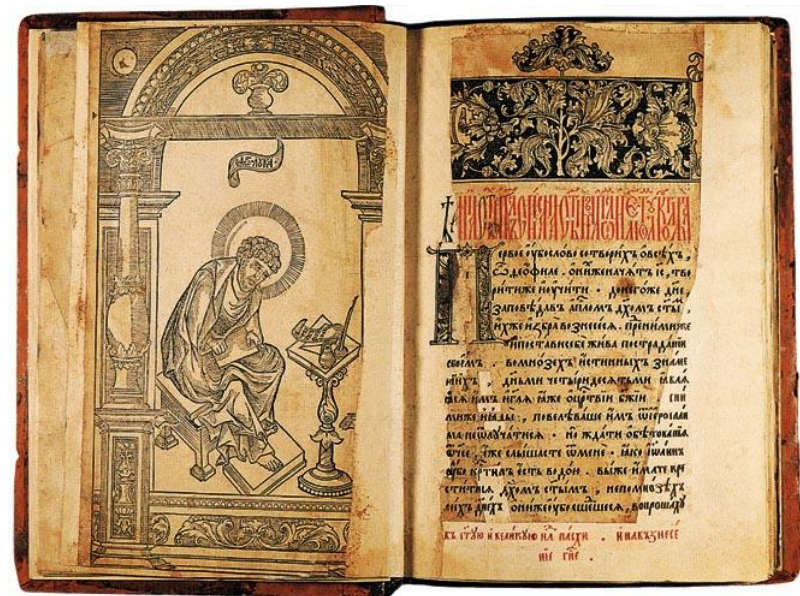 лоука
Первое оубо слово сотворихъ овсѣхъ,
ѽ ѳеофиле . онихже начатъ іс, тво
ритиже иоучити . донегоже дне
заповѣдавъ апломъ дхомъ сты,
ихже избра вознесеся . пренимиже
ипостависебе жива пострадании
своемъ . вомнозѣхъ истинныхъ знаме
ниихъ дньми четыридесятьми явля
яся имъ игля яже оцртвіи бжіи сни
миже иядыи, повелѣваше имъ ѿ
ма неѿлучатися . но ждати обѣтованія
ѿчее, еже слышасте ѿмене . яко іѡаннъ
оубо кртилъ есть водою . выже имате кре
ститися дхомъ стымъ, непомнозѣхъ
сихъ днехъ ониже оубо сшедшеся, вопрошаху
въ стую и великую нлю пасхи . и навъзнесе
ніе гне .